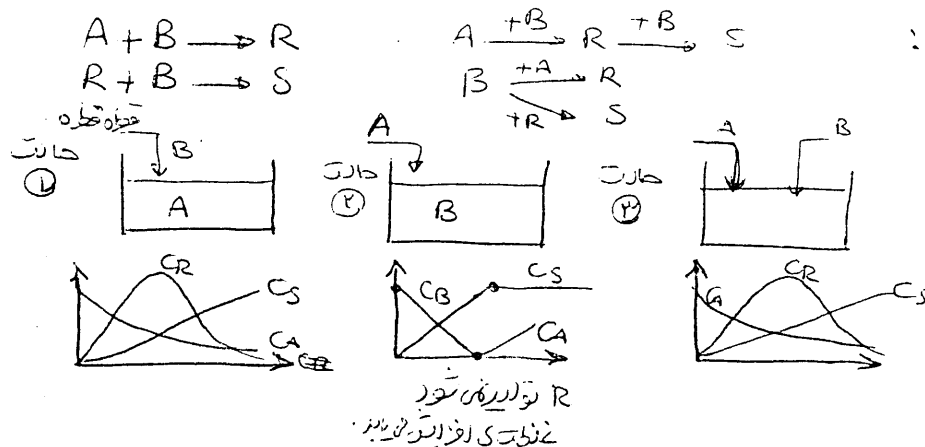 A + B → R
R + B → S
A +B→ R +B→ S :
B +A→ R
+R→ S
قطره قطره
حالت ①
B
A
حالت ②
A
B
حالت ③
A B
C_R
C_S
C_A
C_B
C_S
C_A
C_A
C_R
C_S
R تولید نمی شود
غلظت S افزایش می یابد.